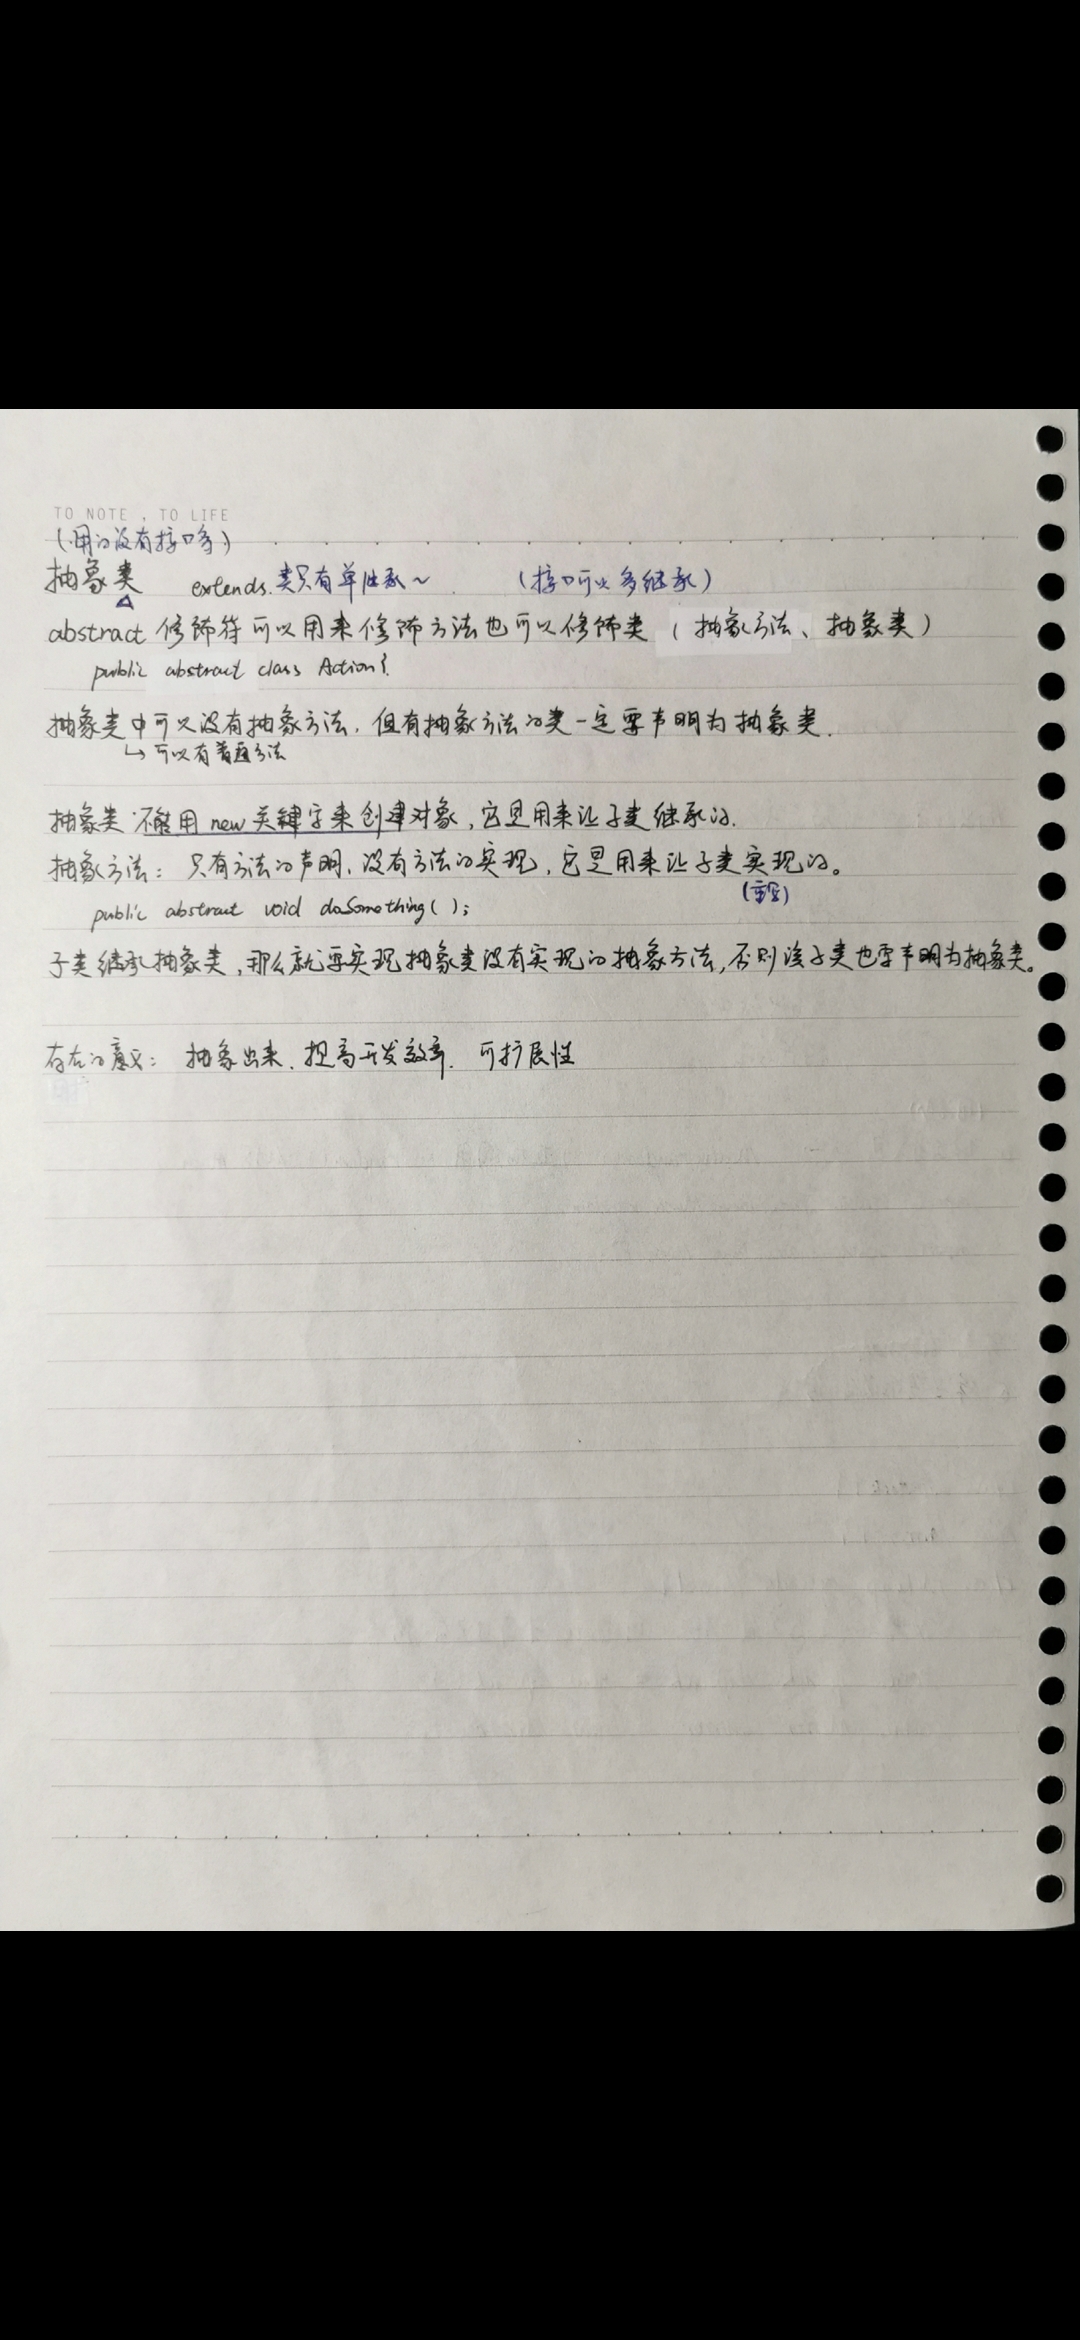 TO NOTE , TO LIFE
(用的没有接口多)
抽象类 extends.类只有单继承～ (接口可以多继承)
abstract 修饰符可以用来修饰方法也可以修饰类（抽象方法、抽象类）
public abstract class Action{
抽象类中可以没有抽象方法，但有抽象方法的类一定要声明为抽象类.
↳ 可以有普通方法
抽象类 不能用 new 关键字来创建对象，它是用来让子类继承的.
抽象方法：只有方法的声明，没有方法的实现，它是用来让子类实现的。
(重写)
public abstract void doSomething( );
子类继承抽象类，那么就要实现抽象类没有实现的抽象方法，否则该子类也要声明为抽象类。
存在的意义：抽象出来．提高开发效率．可扩展性